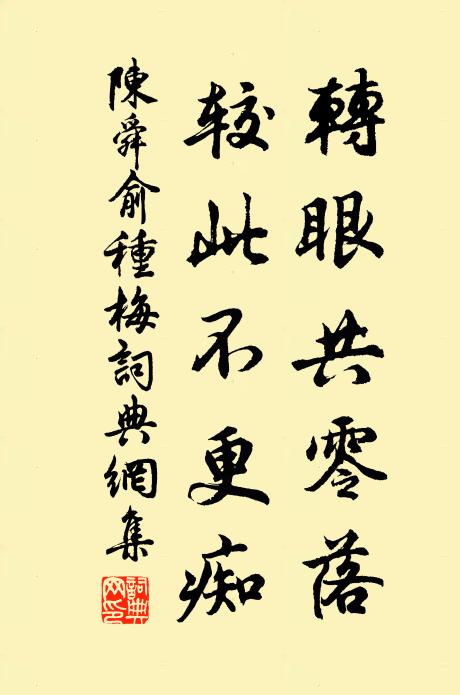 轉眼共零落
較此不更痴
陳舜俞種梅詞典網集
詞典网印